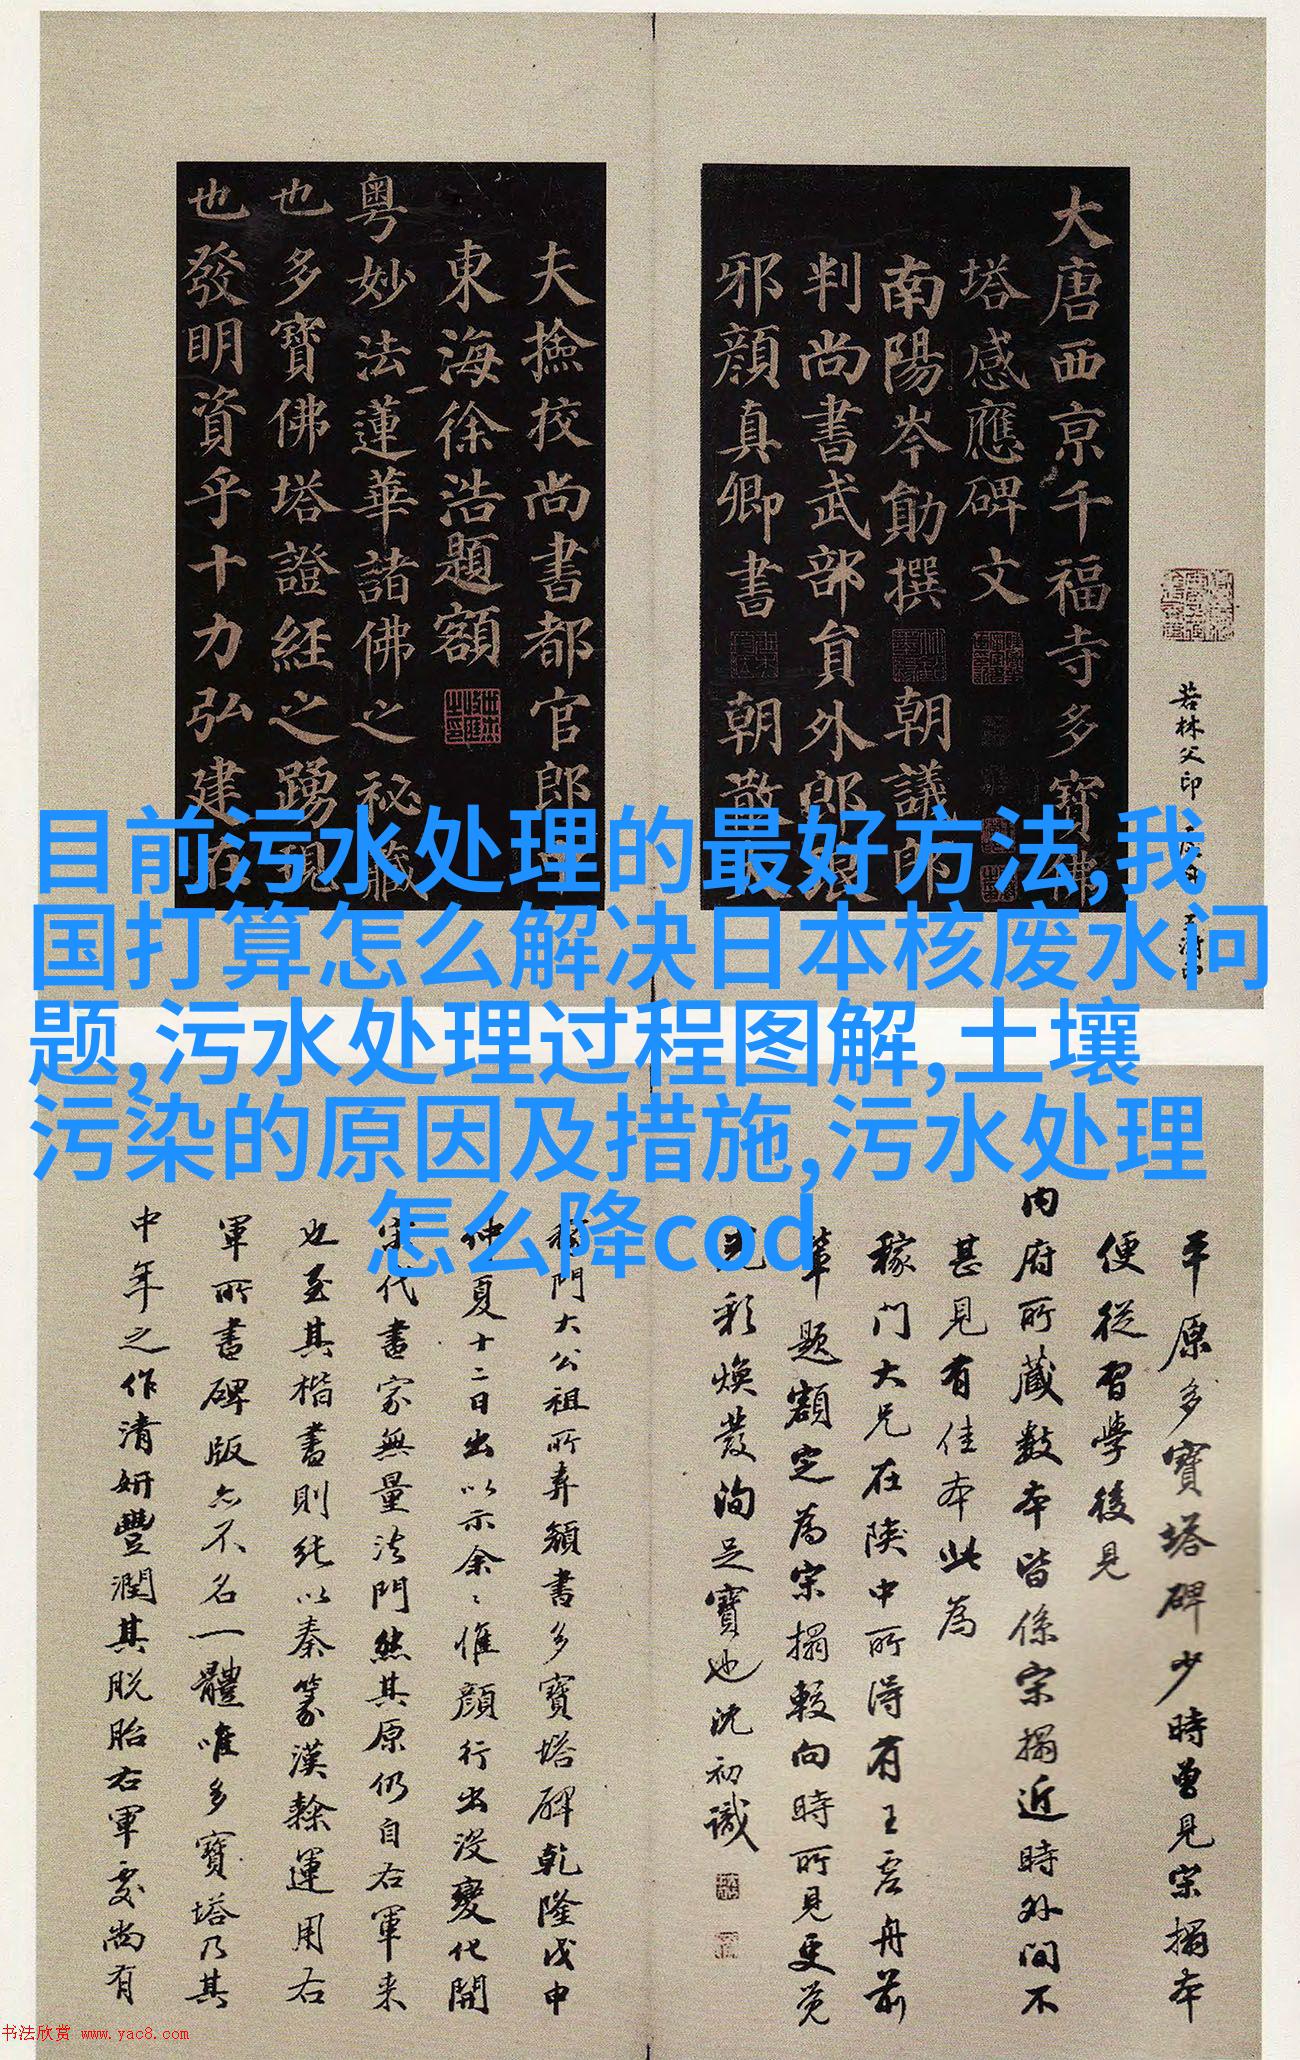 大唐西京千福寺多寶佛
塔感應碑文
南陽岑勛撰 朝議郎
判尚書武部貟外郎琅
邪顏真卿書 朝散大
夫撿挍尚書都官郎
東海徐浩題額
粵妙法蓮華諸佛之秘藏
也多寶佛塔證經之踴現
也發明資乎十力弘建在
若林父印
目前污水处理的最好方法,我
国打算怎么解决日本核废水问
题,污水处理过程图解,土壤
污染的原因及措施,污水处理
怎么降cod
平原多寶塔碑少時曾見宋搨本
便從習學後見
内府所藏數本皆係宋搨近時外間不
甚見有佳本此為
稼門大兄在陝中所得有王虛舟前
輩題額定為宋搨較向時所見更覚
光彩煥發洵足寶也沈初識
稼門大公祖所弆顏書多寶塔碑乾隆戊申
仲夏十二日出以示余〻惟顏行出沒變化開
宋代書家無量法門然其原仍自右軍来
也至其楷書則純以秦篆漢隸運用右
軍所書碑版亦不名一體唯多寶塔乃其
中年之作清妍豐潤其脫胎右軍處尚有
书法欣赏 www.yac8.com